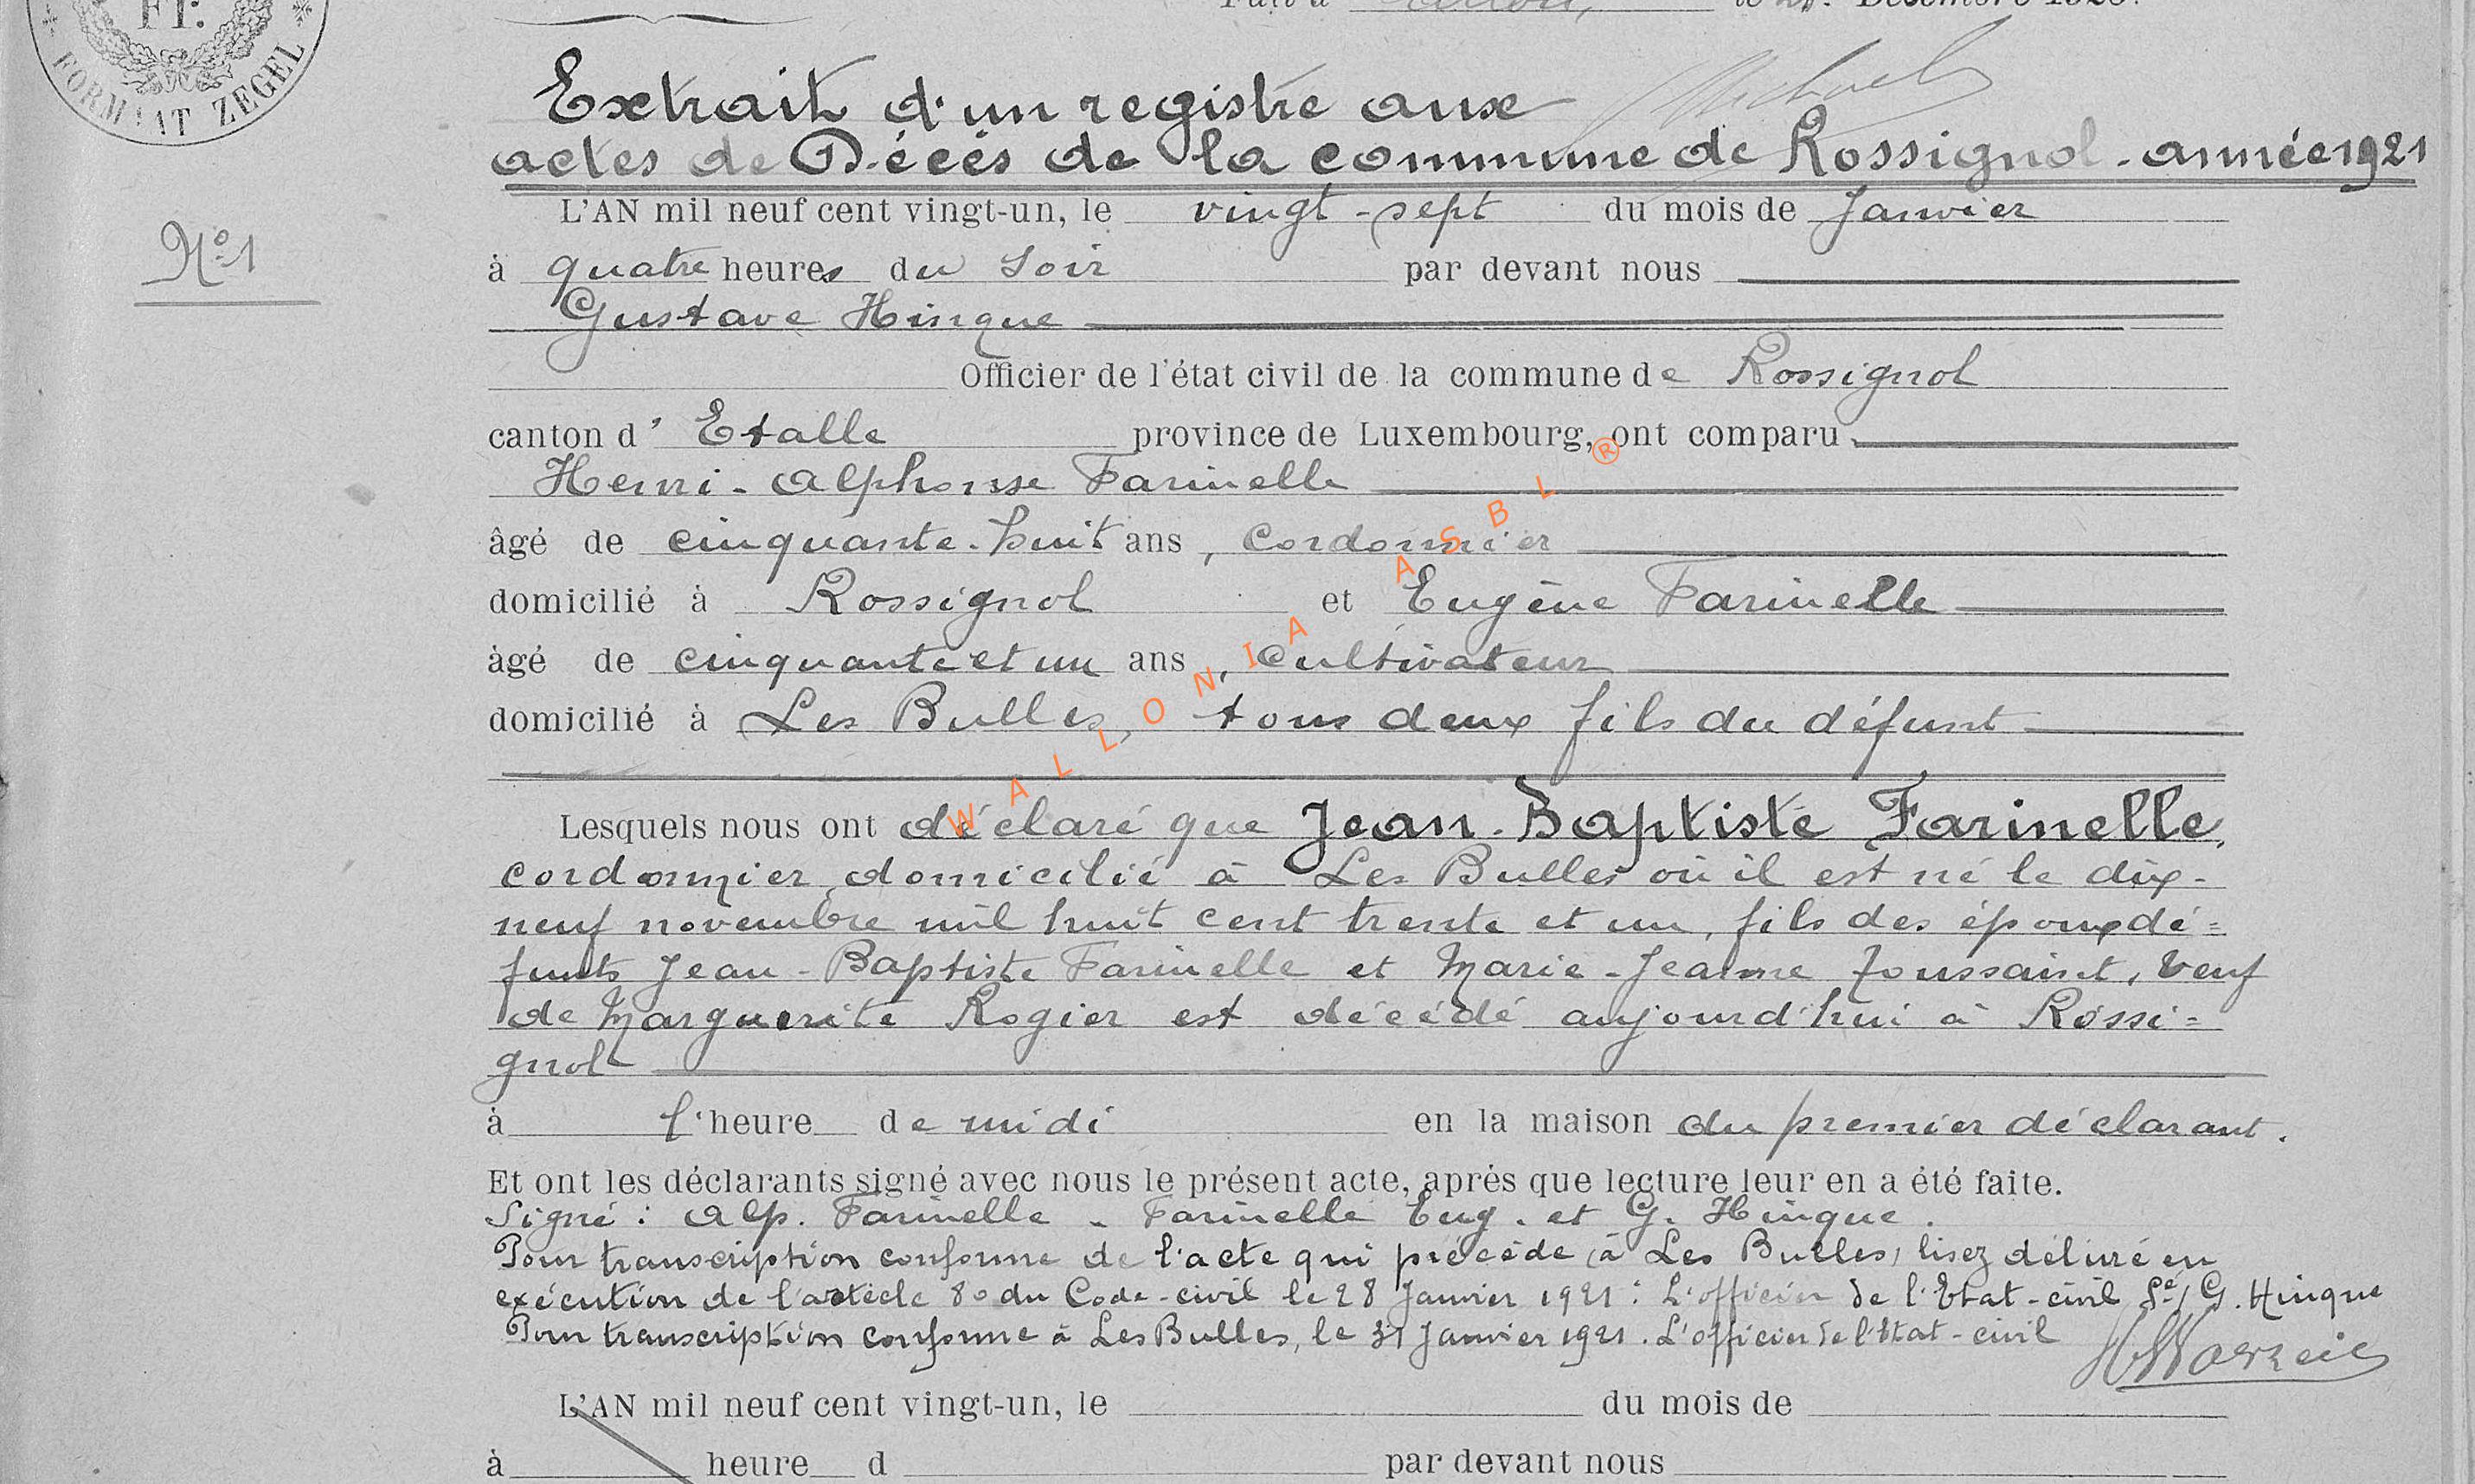 Fait à Arlon, le Décembre 1920.
Fr.
FORMAAT ZEGEL
Extrait d'un registre aux
actes de Décès de la commune de Rossignol - année 1921
Nº 1
L'AN mil neuf cent vingt-un, le vingt-sept du mois de Janvier
à quatre heures du soir par devant nous
Gustave Hinque
Officier de l'état civil de la commune de Rossignol
canton d' Etalle province de Luxembourg, ont comparu
Henri-Alphonse Farinelle
âgé de cinquante-huit ans, cordonnier
domicilié à Rossignol et Eugène Farinelle
âgé de cinquante et un ans, cultivateur
domicilié à Les Bulles, tous deux fils du défunt
WALLONIA ASBL ®
Lesquels nous ont déclaré que Jean-Baptiste Farinelle,
cordonnier, domicilié à Les Bulles où il est né le dix-
neuf novembre mil huit cent trente et un, fils des époux dé=
funts Jean-Baptiste Farinelle et Marie-Jeanne Toussaint, veuf
de Marguerite Rogier est décédé aujourd'hui à Rossi=
gnol
à l'heure de midi en la maison du premier déclarant.
Et ont les déclarants signé avec nous le présent acte, après que lecture leur en a été faite.
Signé : Alp. Farinelle - Farinelle Eug. et G. Hinque.
Pour transcription conforme de l'acte qui précède (à Les Bulles) lisez délivré en
exécution de l'article 80 du Code-civil le 28 Janvier 1921 : L'officier de l'Etat-civil Sé/ G. Hinque
Pour transcription conforme à Les Bulles, le 31 Janvier 1921. L'officier de l'Etat-civil
L'AN mil neuf cent vingt-un, le du mois de
à heure d par devant nous